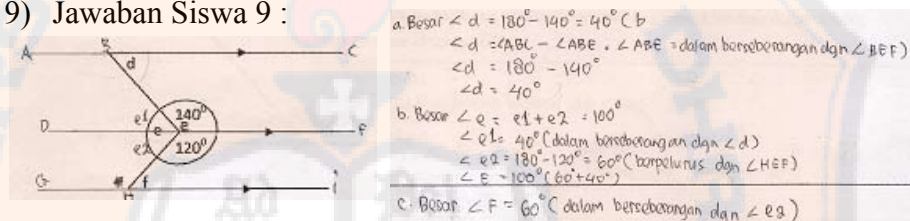 9) Jawaban Siswa 9 :
A
B
C
d
e1
140°
D
e
E
F
e2
120°
G
H
f
I
a. Besar < d = 180° - 140° = 40° (b
< d = <ABC - <ABE . <ABE = dalam berseberangan dgn < BEF)
<d = 180° - 140°
<d = 40°
b. Besar < e = e1 + e2 = 100°
< e1 = 40° (dalam berseberangan dgn < d)
< e2 = 180° - 120° = 60° (berpelurus dgn <HEF)
< E = 100° (60° + 40°)
c. Besar < F = 60° (dalam berseberangan dan < e2)